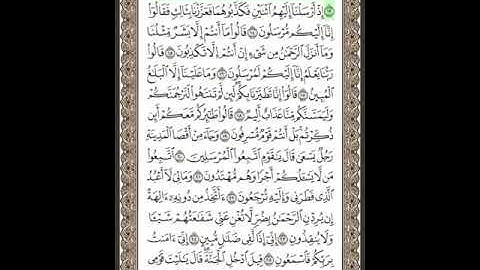 إِذْ أَرْسَلْنَا إِلَيْهِمُ اثْنَيْنِ فَكَذَّبُوهُمَا فَعَزَّزْنَا بِثَالِثٍ فَقَالُوا
إِنَّا إِلَيْكُم مُّرْسَلُونَ ١٤ قَالُوا مَا أَنتُمْ إِلَّا بَشَرٌ مِّثْلُنَا
وَمَا أَنزَلَ الرَّحْمَٰنُ مِن شَيْءٍ إِنْ أَنتُمْ إِلَّا تَكْذِبُونَ ١٥ قَالُوا
رَبُّنَا يَعْلَمُ إِنَّا إِلَيْكُمْ لَمُرْسَلُونَ ١٦ وَمَا عَلَيْنَا إِلَّا الْبَلَاغُ
الْمُبِينُ ١٧ قَالُوا إِنَّا تَطَيَّرْنَا بِكُمْ لَئِن لَّمْ تَنتَهُوا لَنَرْجُمَنَّكُمْ
وَلَيَمَسَّنَّكُم مِّنَّا عَذَابٌ أَلِيمٌ ١٨ قَالُوا طَائِرُكُم مَّعَكُمْ أَئِن
ذُكِّرْتُم بَلْ أَنتُمْ قَوْمٌ مُّسْرِفُونَ ١٩ وَجَاءَ مِنْ أَقْصَا الْمَدِينَةِ
رَجُلٌ يَسْعَىٰ قَالَ يَا قَوْمِ اتَّبِعُوا الْمُرْسَلِينَ ٢٠ اتَّبِعُوا
مَن لَّا يَسْأَلُكُمْ أَجْرًا وَهُم مُّهْتَدُونَ ٢١ وَمَا لِيَ لَا أَعْبُدُ
الَّذِي فَطَرَنِي وَإِلَيْهِ تُرْجَعُونَ ٢٢ أَأَتَّخِذُ مِن دُونِهِ آلِهَةً
إِن يُرِدْنِ الرَّحْمَٰنُ بِضُرٍّ لَّا تُغْنِ عَنِّي شَفَاعَتُهُمْ شَيْئًا
وَلَا يُنقِذُونِ ٢٣ إِنِّي إِذًا لَّفِي ضَلَالٍ مُّبِينٍ ٢٤ إِنِّي آمَنتُ
بِرَبِّكُمْ فَاسْمَعُونِ ٢٥ قِيلَ ادْخُلِ الْجَنَّةَ قَالَ يَا لَيْتَ قَوْمِي